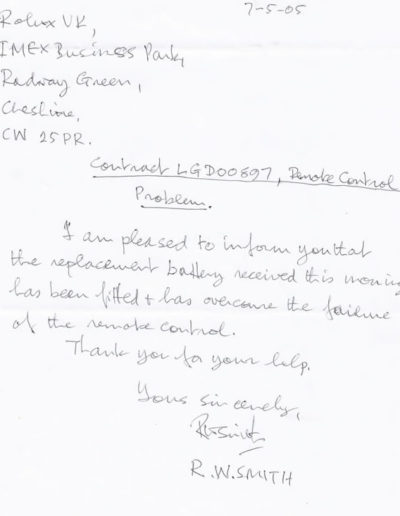 7-5-05
Rolux UK,
IMEX Business Park,
Radway Green,
Cheshire,
CW 25PR.
Contract LGD00897, Remote Control
Problem.
I am pleased to inform you that
the replacement battery received this morning
has been fitted + has overcome the failure
of the remote control.
Thank you for your help.
Yours sincerely,
R.W.SMITH